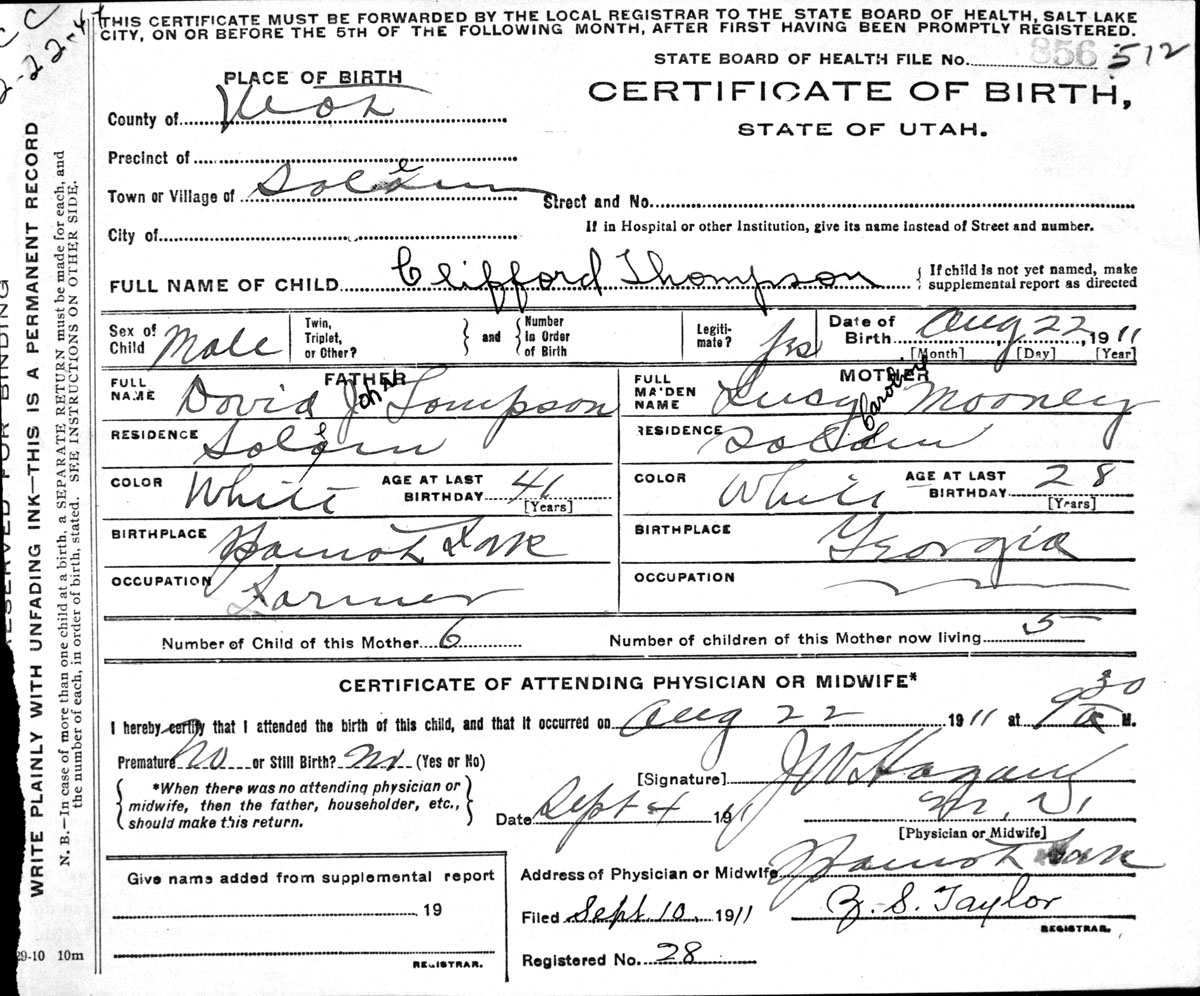 THIS CERTIFICATE MUST BE FORWARDED BY THE LOCAL REGISTRAR TO THE STATE BOARD OF HEALTH, SALT LAKE
CITY, ON OR BEFORE THE 5TH OF THE FOLLOWING MONTH, AFTER FIRST HAVING BEEN PROMPTLY REGISTERED.
STATE BOARD OF HEALTH FILE No. 856 512
PLACE OF BIRTH
CERTIFICATE OF BIRTH,
STATE OF UTAH.
County of
Precinct of
Town or Village of Salem
Street and No.
City of
If in Hospital or other Institution, give its name instead of Street and number.
FULL NAME OF CHILD Clifford Thompson
If child is not yet named, make
supplemental report as directed
Sex of Child Male
Twin, Triplet, or Other?
and
Number in Order of Birth
Legiti-mate? yes
Date of Birth Aug 22, 1911
[Month] [Day] [Year]
FATHER
FULL NAME David John Tompson
RESIDENCE Salem
COLOR White AGE AT LAST BIRTHDAY 41
[Years]
BIRTHPLACE Spanish Fork
OCCUPATION Farmer
MOTHER
FULL MAIDEN NAME Lucy Mooney
RESIDENCE Salem
COLOR White AGE AT LAST BIRTHDAY 28
[Years]
BIRTHPLACE Georgia
OCCUPATION
Number of Child of this Mother 6 Number of children of this Mother now living 5
CERTIFICATE OF ATTENDING PHYSICIAN OR MIDWIFE*
I hereby certify that I attended the birth of this child, and that it occurred on Aug 22 1911 at 9 30 a M.
Premature No or Still Birth? No (Yes or No)
*When there was no attending physician or
midwife, then the father, householder, etc.,
should make this return.
[Signature] J W Hagan
Date Sept 4 1911 M. D.
[Physician or Midwife]
Address of Physician or Midwife Spanish Fork
Give name added from supplemental report
19
REGISTRAR.
Filed Sept. 10, 1911 Z. S. Taylor
REGISTRAR.
Registered No. 28
29-10 10m
RESERVED FOR BINDING
WRITE PLAINLY WITH UNFADING INK—THIS IS A PERMANENT RECORD
N. B.—In case of more than one child at a birth, a SEPARATE RETURN must be made for each, and
the number of each, in order of birth, stated. SEE INSTRUCTIONS ON OTHER SIDE.